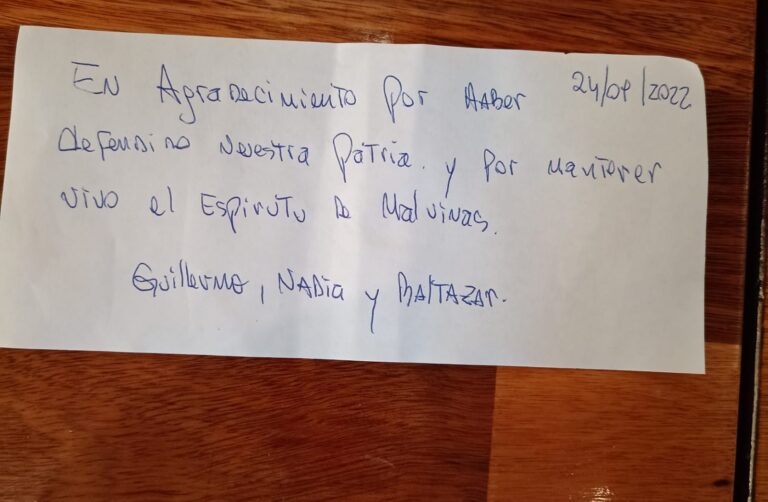 En Agradecimiento por Haber 24/09/2022
defendido Nuestra Patria. y por mantener
vivo el Espiritu De Malvinas.
Guillermo, Nadia y Baltazar.